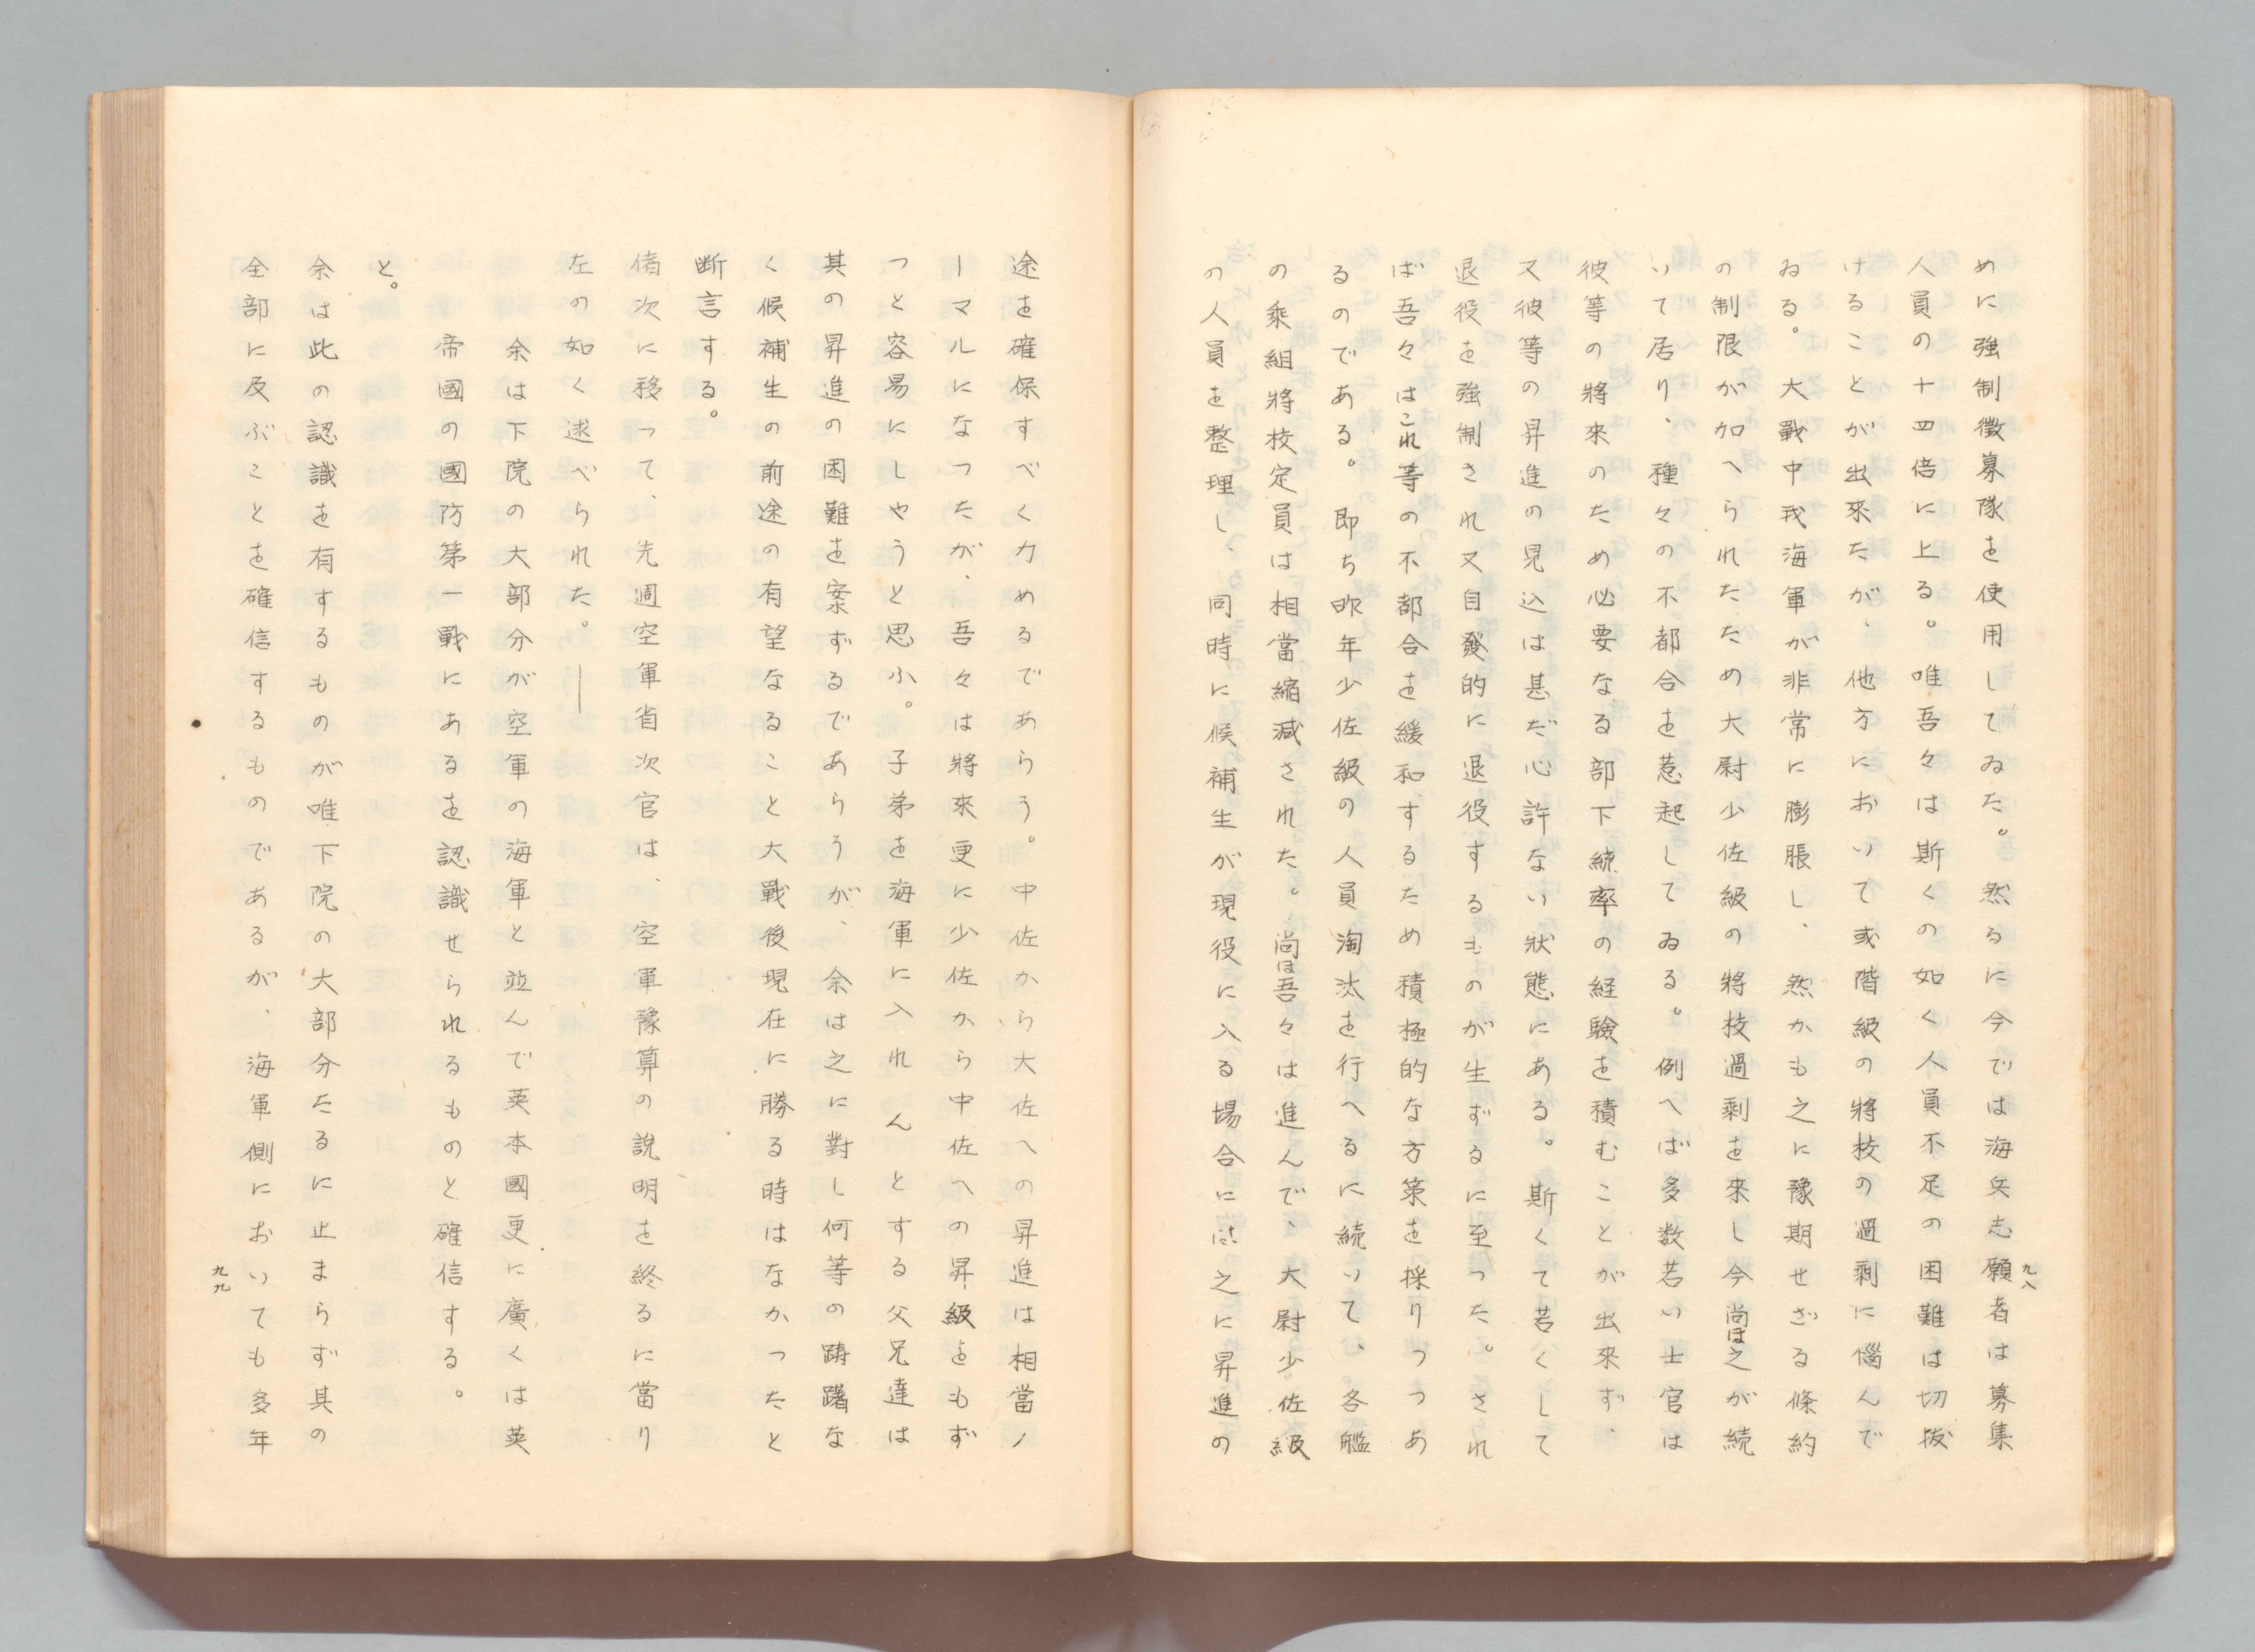 めに強制徴募隊を使用してゐた。然るに今では海兵志願者は募集
人員の十四倍に上る。唯吾々は斯くの如く人員不足の困難は切抜
けることが出來たが、他方において或階級の將校の過剰に惱んで
ゐる。大戰中我海軍が非常に膨脹し、然かも之に豫期せざる條約
の制限が加へられたため大尉少佐級の將校過剰を來し今尚ほ之が続
いて居り、種々の不都合を惹起してゐる。例へば多数若い士官は
彼等の將來のため必要なる部下統率の経驗を積むことが出來ず、
又彼等の昇進の見込は甚だ心許ない狀態にある。斯くて若くして
退役を強制され又自發的に退役するものが生ずるに至った。され
ば吾々はこれ等の不都合を緩和するため積極的な方策を採りつつあ
るのである。即ち昨年少佐級の人員淘汰を行へるに続いて、各艦
の乘組將校定員は相當縮減された。尚ほ吾々は進んで、大尉少佐級
の人員を整理し、同時に候補生が現役に入る場合には之に昇進の
九八
途を確保すべく力めるであらう。中佐から大佐への昇進は相當ノ
ーマルになつたが、吾々は將來更に少佐から中佐への昇級をもず
つと容易にしやうと思ふ。子弟を海軍に入れんとする父兄達は
其の昇進の困難を案ずるであらうが、余は之に對し何等の躊躇な
く候補生の前途の有望なること大戰後現在に勝る時はなかったと
断言する。
偖次に移って、先週空軍省次官は、空軍豫算の說明を終るに當り
左の如く述べられた。――
余は下院の大部分が空軍の海軍と竝んで英本國更に廣くは英
帝國の國防第一戰にあるを認識せられるものと確信する。
と。
余は此の認識を有するものが唯下院の大部分たるに止まらず其の
全部に反ぶことを確信するものであるが、海軍側においても多年
九九